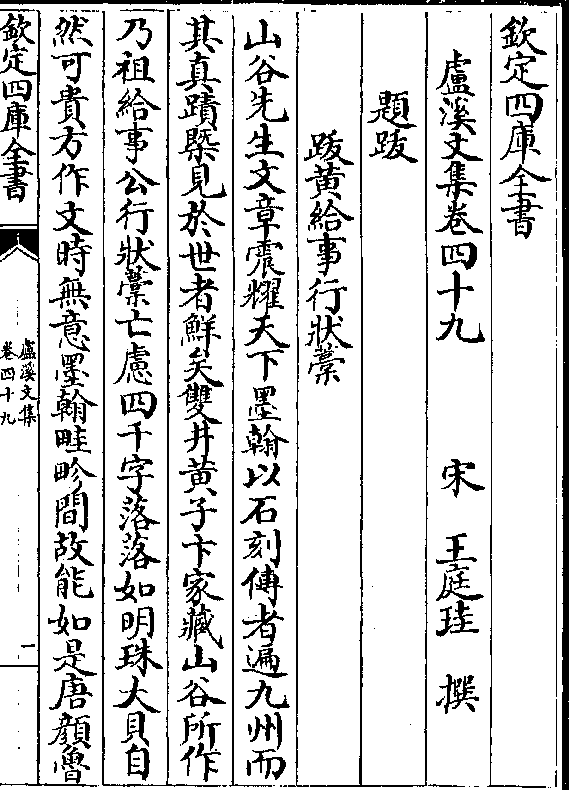 欽定四庫全書
盧溪文集卷四十九　　　宋　王庭珪　撰
題跋
跋黃給事行狀藁
山谷先生文章震耀天下墨翰以石刻傳者遍九州而
其真蹟槩見於世者鮮矣雙井黃子卞家藏山谷所作
乃祖給事公行狀藁亡慮四千字落落如明珠大貝自
然可貴方作文時無意墨翰畦畛間故能如是唐顏魯
欽定四庫全書
盧溪文集
卷四十九
一